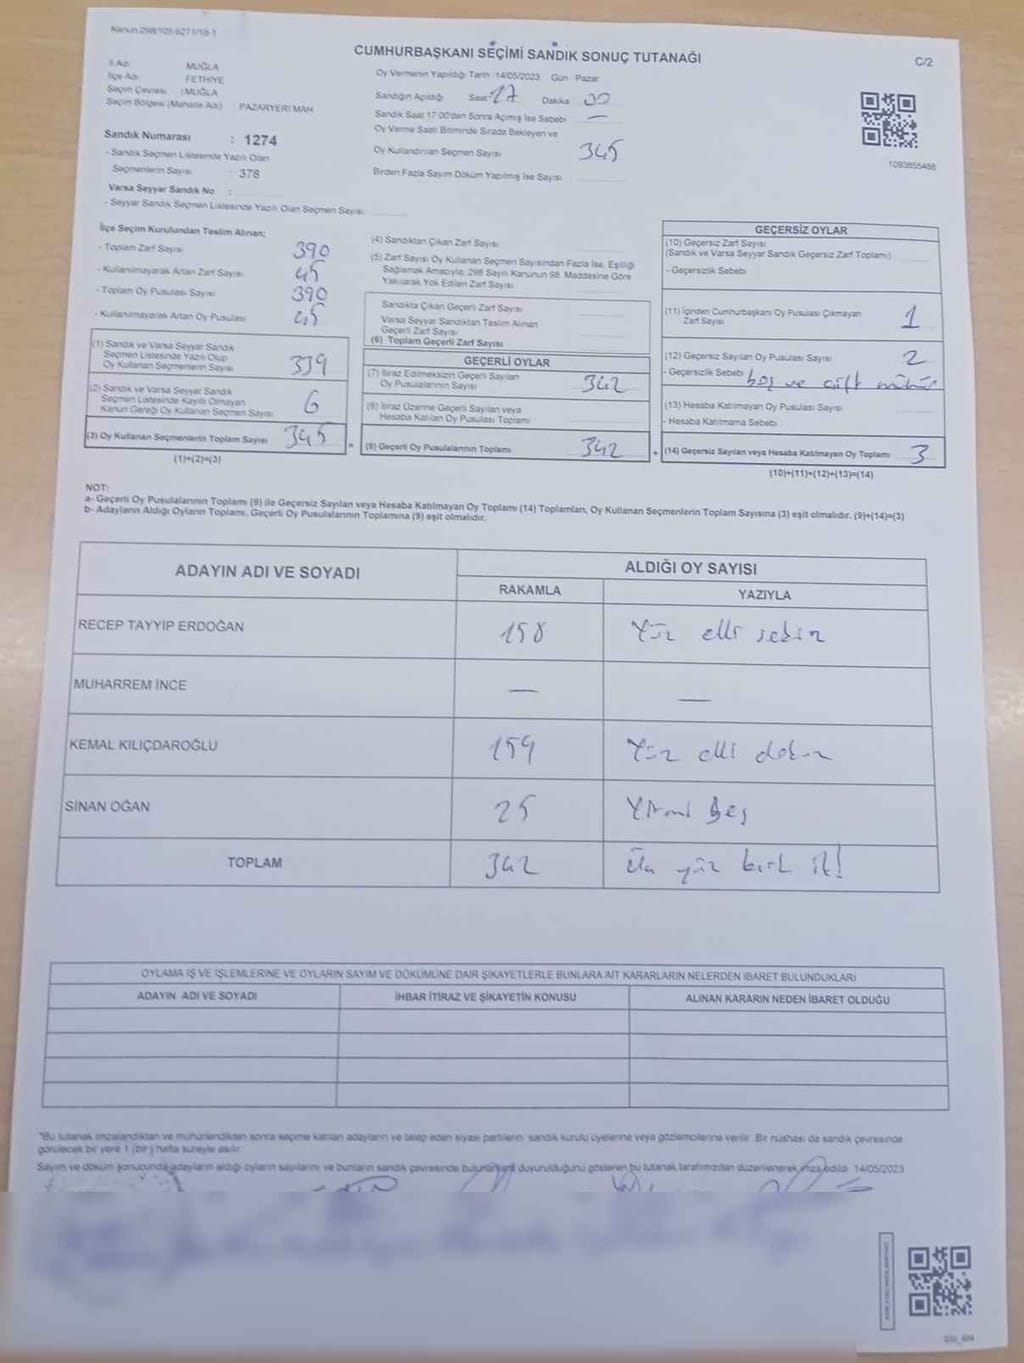 Kanun:298/105.6271/18-1
CUMHURBAŞKANI SEÇİMİ SANDIK SONUÇ TUTANAĞI
C/2
İl Adı : MUĞLA
İlçe Adı : FETHİYE
Seçim Çevresi : MUĞLA
Seçim Bölgesi (Mahalle Adı) : PAZARYERİ MAH
Sandık Numarası : 1274
- Sandık Seçmen Listesinde Yazılı Olan
Seçmenlerin Sayısı : 378
Varsa Seyyar Sandık No :
- Seyyar Sandık Seçmen Listesinde Yazılı Olan Seçmen Sayısı
Oy Vermenin Yapıldığı Tarih :14/05/2023 Gün : Pazar
Sandığın Açıldığı Saat 17 Dakika 00
Sandık Saat 17:00'den Sonra Açılmış İse Sebebi —
Oy Verme Saati Bitiminde Sırada Bekleyen ve
Oy Kullandırılan Seçmen Sayısı 345
Birden Fazla Sayım Döküm Yapılmış İse Sayısı
1093855486
İlçe Seçim Kurulundan Teslim Alınan;
- Toplam Zarf Sayısı 390
- Kullanılmayarak Artan Zarf Sayısı 45
- Toplam Oy Pusulası Sayısı 390
- Kullanılmayarak Artan Oy Pusulası 45
(1) Sandık ve Varsa Seyyar Sandık
Seçmen Listesinde Yazılı Olup
Oy Kullanan Seçmenlerin Sayısı 339
(2) Sandık ve Varsa Seyyar Sandık
Seçmen Listesinde Kayıtlı Olmayan
Kanun Gereği Oy Kullanan Seçmen Sayısı 6
(3) Oy Kullanan Seçmenlerin Toplam Sayısı 345 =
(1)+(2)=(3)
(4) Sandıktan Çıkan Zarf Sayısı
(5) Zarf Sayısı Oy Kullanan Seçmen Sayısından Fazla İse, Eşitliği
Sağlamak Amacıyla, 298 Sayılı Kanunun 98. Maddesine Göre
Yakılarak Yok Edilen Zarf Sayısı
Sandıkta Çıkan Geçerli Zarf Sayısı
Varsa Seyyar Sandıktan Teslim Alınan
Geçerli Zarf Sayısı
(6) Toplam Geçerli Zarf Sayısı
GEÇERLİ OYLAR
(7) İtiraz Edilmeksizin Geçerli Sayılan
Oy Pusulalarının Sayısı 342
(8) İtiraz Üzerine Geçerli Sayılan veya
Hesaba Katılan Oy Pusulaları Toplamı
(9) Geçerli Oy Pusulalarının Toplamı 342 +
GEÇERSİZ OYLAR
(10) Geçersiz Zarf Sayısı
(Sandık ve Varsa Seyyar Sandık Geçersiz Zarf Toplamı)
- Geçersizlik Sebebi
(11) İçinden Cumhurbaşkanı Oy Pusulası Çıkmayan
Zarf Sayısı 1
(12) Geçersiz Sayılan Oy Pusulası Sayısı 2
- Geçersizlik Sebebi boş ve çift mühür
(13) Hesaba Katılmayan Oy Pusulası Sayısı
- Hesaba Katılmama Sebebi
(14) Geçersiz Sayılan veya Hesaba Katılmayan Oy Toplamı 3
(10)+(11)+(12)+(13)=(14)
NOT:
a- Geçerli Oy Pusulalarının Toplamı (9) ile Geçersiz Sayılan veya Hesaba Katılmayan Oy Toplamı (14) Toplamları, Oy Kullanan Seçmenlerin Toplam Sayısına (3) eşit olmalıdır. (9)+(14)=(3)
b- Adayların Aldığı Oyların Toplamı, Geçerli Oy Pusulalarının Toplamına (9) eşit olmalıdır.
ADAYIN ADI VE SOYADI
ALDIĞI OY SAYISI
RAKAMLA YAZIYLA
RECEP TAYYİP ERDOĞAN 158 Yüz elli sekiz
MUHARREM İNCE — —
KEMAL KILIÇDAROĞLU 159 Yüz elli dokuz
SİNAN OĞAN 25 Yirmi Beş
TOPLAM 342 Üç yüz kırk iki
OYLAMA İŞ VE İŞLEMLERİNE VE OYLARIN SAYIM VE DÖKÜMÜNE DAİR ŞİKAYETLERLE BUNLARA AİT KARARLARIN NELERDEN İBARET BULUNDUKLARI
ADAYIN ADI VE SOYADI İHBAR İTİRAZ VE ŞİKAYETİN KONUSU ALINAN KARARIN NEDEN İBARET OLDUĞU
"Bu tutanak imzalandıktan ve mühürlendikten sonra seçime katılan adayların ve talep eden siyasi partilerin sandık kurulu üyelerine veya gözlemcilerine verilir. Bir nüshası da sandık çevresinde
görülecek bir yere 1 (bir) hafta süreyle asılır.
Sayım ve döküm sonucunda adayların aldığı oyların sayılarını ve bunların sandık çevresinde bulunanlara duyurulduğunu gösteren bu tutanak tarafımızdan düzenlenerek imza edildi. 14/05/2023